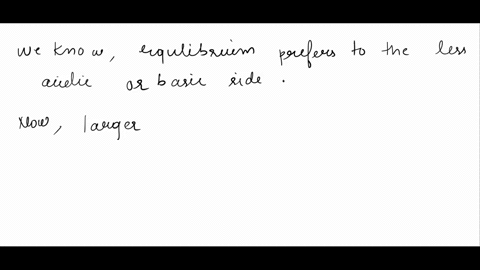 we know, equlibrium prefers to the less
acidic or basic side.
Now, larger